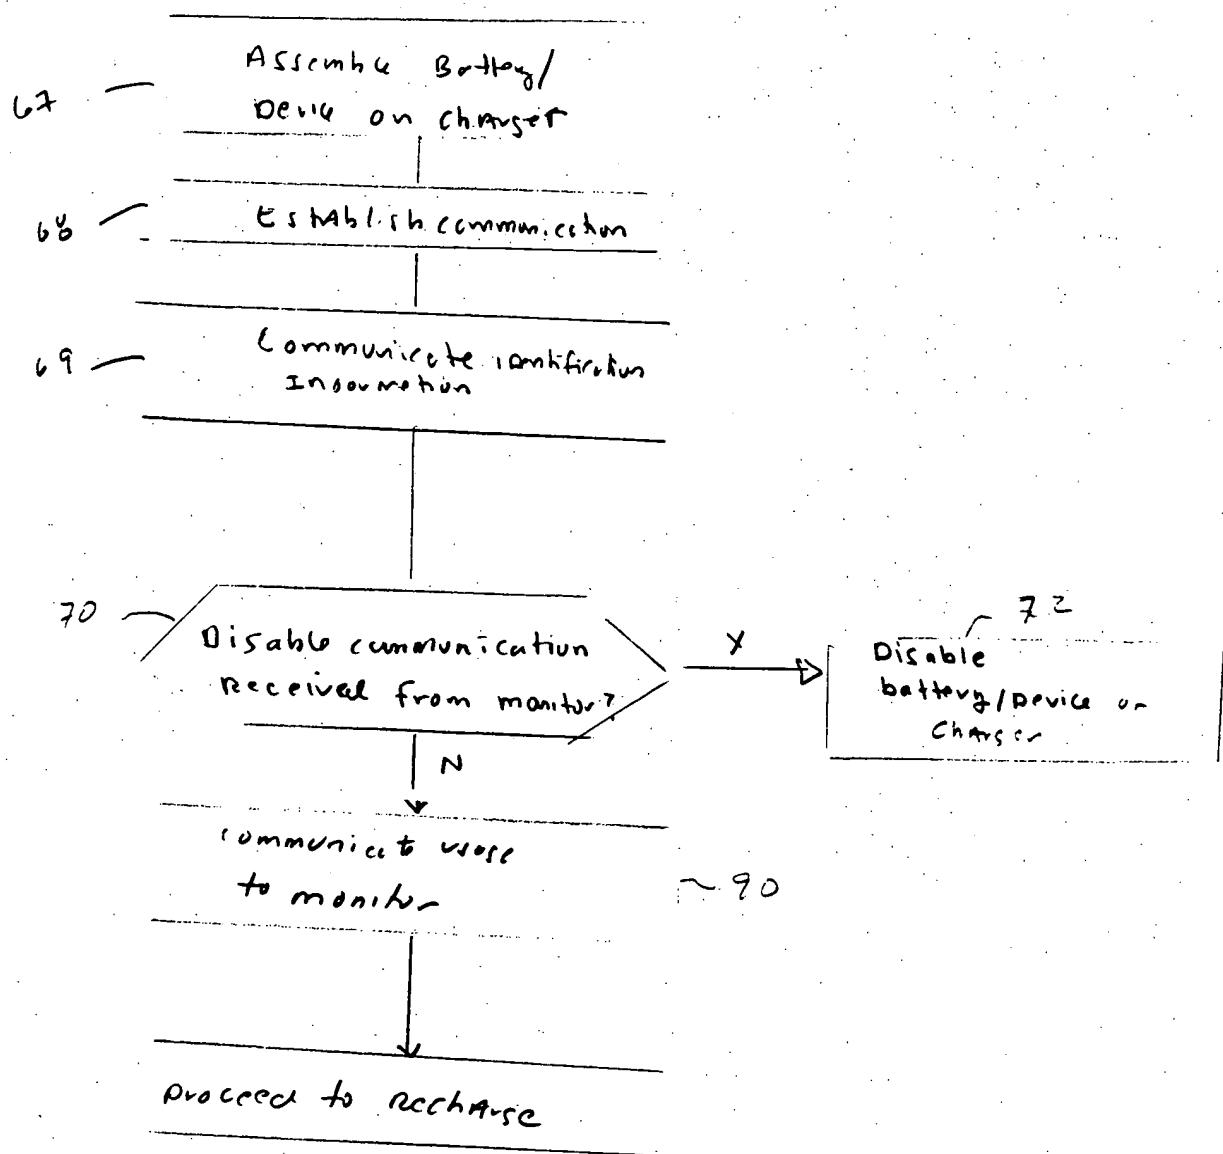 67
Assemble Battery/
Device on charger
68
Establish communication
69
Communicate identification
Information
70
Disable communication
received from monitor?
Y
72
Disable
battery/Device or
Charger
N
communicate usage
to monitor
~90
proceed to recharge